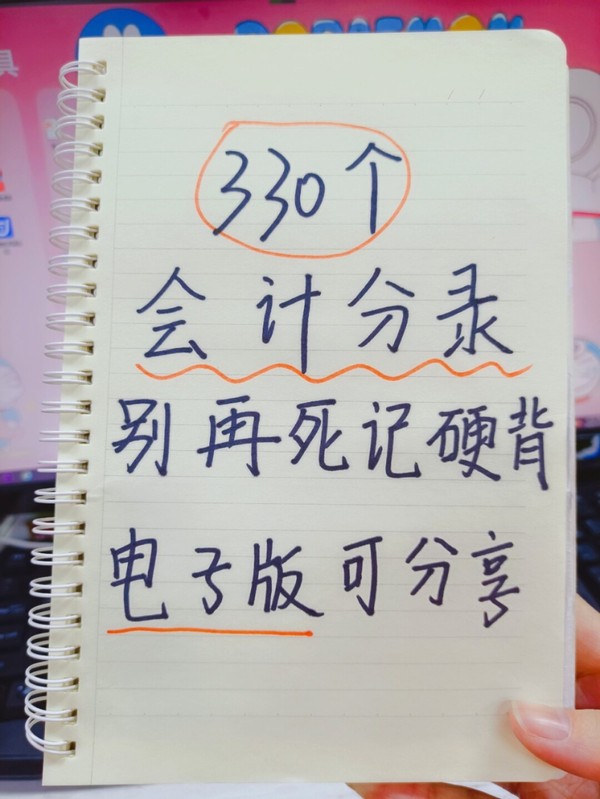 330个
会计分录
别再死记硬背
电子版可分享